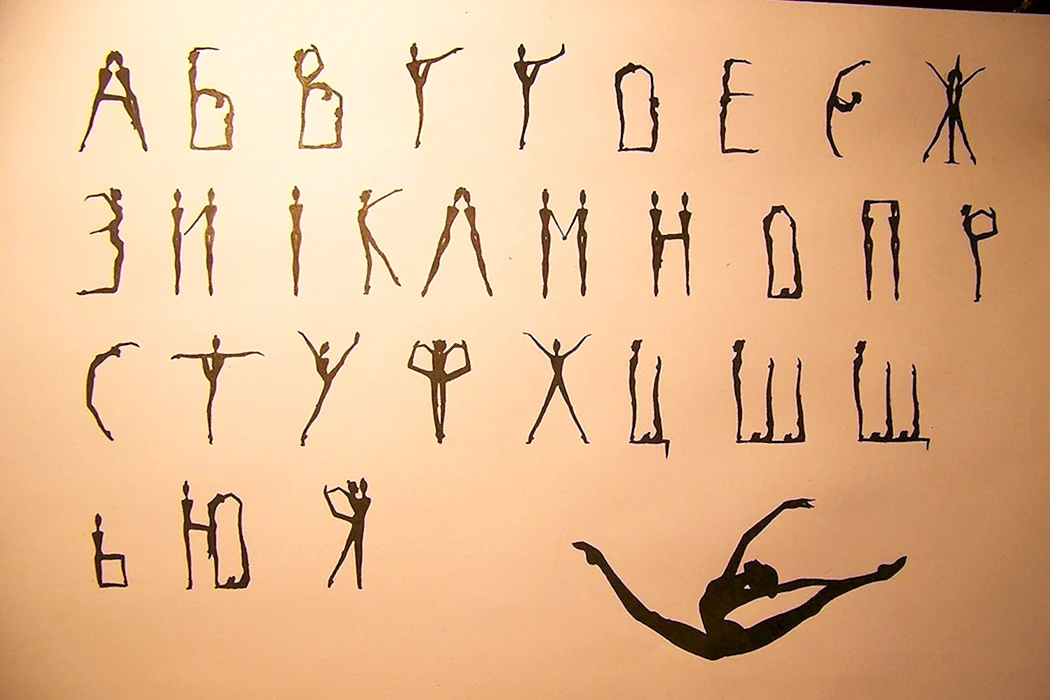 А Б В Г Ґ Д Е Є Ж
З И І К Л М Н О П Р
С Т У Ф Х Ц Ш Щ
Ь Ю Я